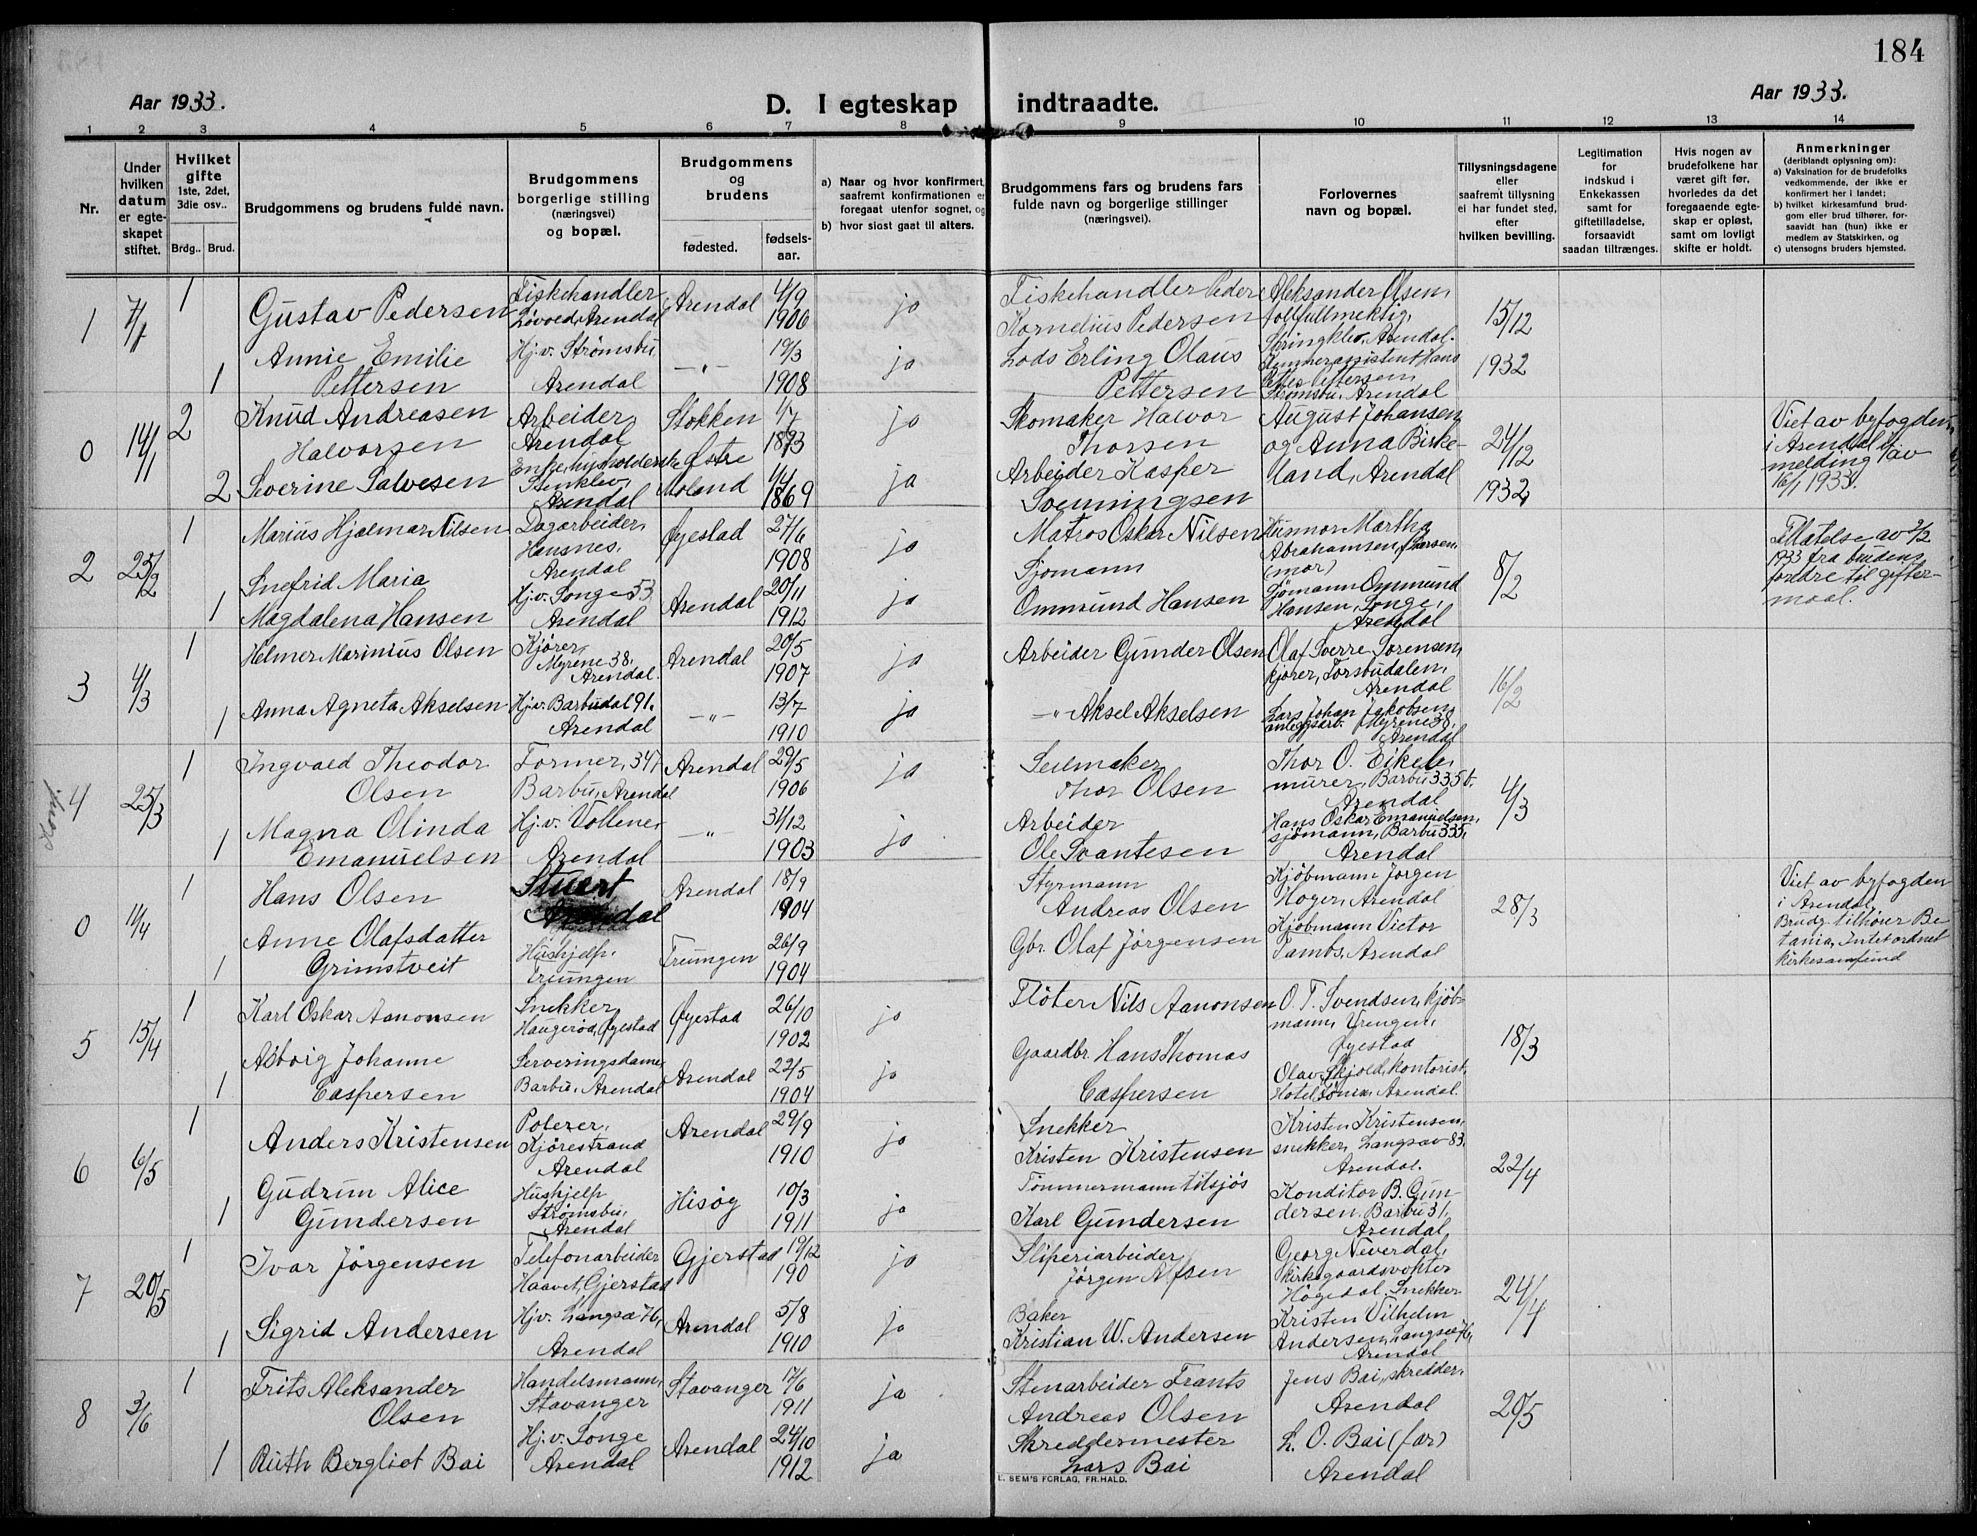 184
Aar 1933.
D. I egteskap indtraadte.
Aar 1933.
1 2 3 4 5 6 7 8 9 10 11 12 13 14
Nr.
Under hvilken datum er egteskapet stiftet.
Hvilket gifte
1ste, 2det, 3die osv..
Brdg.. Brud.
Brudgommens og brudens fulde navn.
Brudgommens borgerlige stilling (næringsvei) og bopæl.
Brudgommens og brudens
fødested. fødsels-aar.
a) Naar og hvor konfirmert, saafremt konfirmationen er foregaat utenfor sognet, og
b) hvor sidst gaat til alters.
Brudgommens fars og brudens fars fulde navn og borgerlige stillinger (næringsvei).
Forlovernes navn og bopæl.
Tillysningsdagene eller saafremt tillysning ei har fundet sted, efter hvilken bevilling.
Legitimation for indskud i Enkekassen samt for giftetilladelse, forsaavidt saadan tiltrænges.
Hvis nogen av brudefolkene har været gift før, hvorledes da det foregaaende egteskap er opløst, samt om lovligt skifte er holdt.
Anmerkninger
(deriblandt oplysning om):
a) Vaksination for de brudefolks vedkommende, der ikke er konfirmert her i landet;
b) hvilket kirkesamfund brudgom eller brud tilhører, forsaavidt han (hun) ikke er medlem av Statskirken, og
c) utensogns bruders hjemsted.
1 7/1 1 Gustav Pedersen Fiskehandler Arendal 4/9 1906 ja Fiskehandler Peder Kornelius Pedersen Aleksander Olsen, tollfullmektig, Arendal. 15/12 1932
1 Annie Emilie Pettersen Hj.v. Strømsbu Arendal —„— 19/3 1908 ja Lods Erling Olaus Pettersen Strømsbu, Arendal
0 14/1 2 Knud Andreasen Halvorsen Arbeider, Arendal Stokken 1/7 1873 ja Skomaker Halvor Thorsen August Johansen og Anna Birkeland, Arendal 24/12 1932 Viet av byfogden i Arendal melding av 16/1 1933.
2 Severine Salvesen Stenklev, Arendal Østre Moland 1869 ja Arbeider Kasper Svenningsen
2 25/2 1 Marius Hjalmar Nilsen Dagarbeider, Hansnes, Arendal Øyestad 27/6 1908 ja Matros Oskar Nilsen Martha Abrahamsen, (mor) 8/2 Tillatelse av 1933 fra brudens foreldre til giftermaal.
1 Snefrid Maria Magdalena Hansen Hj.v. Songe 53 Arendal Arendal 20/11 1912 ja Sjømann Ommund Hansen Sjømann Ommund Hansen, Songe, Arendal
3 4/3 1 Helmer Marinius Olsen Kjører, Myrene 38, Arendal. Arendal 20/5 1907 ja Arbeider Gunder Olsen Olaf Sverre Sorensen, kjører, Torsbudalen, Arendal 16/2
1 Anna Agneta Akselsen Hj.v. Barbudal 91. Arendal —„— 13/7 1910 ja —„— Aksel Akselsen Lars Johan Jakobsen, anleggsarb. Myrene 38, Arendal
4 25/3 1 Ingvald Theodor Olsen Former, 347 Barbu, Arendal Arendal 29/5 1906 ja Seilmaker Thor Olsen Thor O. Eikeli, murer, Barbu 335 b. Arendal 4/3
1 Magna Olinda Emanuelsen Hj.v. Vollene, Arendal —„— 31/12 1903 ja Arbeider Ole Svantesen Hans Oskar Emanuelsen, sjømann, Barbu 335, Arendal
0 11/4 1 Hans Olsen Stuert Arendal Arendal 18/9 1904 Styrmann Andreas Olsen Kjøbmann Jørgen Høger, Arendal 28/3 Viet av byfogden i Arendal, Brudg. tilhører Betania, intet ordnet kirkesamfund
1 Anne Olafsdatter Grimstveit Hushjelp, Treungen Treungen 26/9 1904 Gbr. Olaf Jörgensen Kjøbmann Victor Tambs, Arendal
5 15/4 1 Karl Oskar Aanonsen Snekker Haugerød, Øyestad Øyestad 26/10 1902 ja Fløter Nils Aanonsen O. T. Svendsen, kjøbmann, Vrengen, Øyestad 18/3
1 Asborg Johanne Caspersen Serveringsdame, Barbu, Arendal Arendal 22/5 1904 ja Gaardbr. Hans Thomas Caspersen Olav Skjold, kontorist, Hotel Fønix, Arendal.
6 6/5 1 Anders Kristensen Polerer, Kjørestrand Arendal Arendal 29/9 1910 ja Snekker Kristen Kristensen Kristen Kristensen, snekker, Langsæv 83. Arendal. 22/4
1 Gudrun Alice Gundersen Hushjelp Strømsbu, Arendal Hisøy 10/3 1911 ja Tømmermann tilsjøs Karl Gundersen Konditor B. Gundersen, Barbu 31, Arendal
7 20/5 1 Ivar Jørgensen Telefonarbeider Haavet, Gjerstad Gjerstad 19/12 190 ja Sliperiarbeider Jørgen Alfsen Georg Neverdal, kirkegaardsvokter Høgedal. Snekker 24/4
1 Sigrid Andersen Hj.v. Langsæ 76, Arendal Arendal 5/8 1910 ja Baker Kristian W. Andersen Kristen Vilhelm Andersen, Langsæ 76, Arendal
8 3/6 1 Frits Aleksander Olsen Handelsmann, Stavanger Stavanger 17/6 1911 ja Stenarbeider Frants Andreas Olsen Jens Bai, skredder, Arendal 20/5
1 Ruth Bergliot Bai Hj.v. Songe Arendal Arendal 24/10 1912 ja Skreddermester Lars Bai L. O. Bai (far) Arendal
SEM'S FORLAG, FR.HALD.